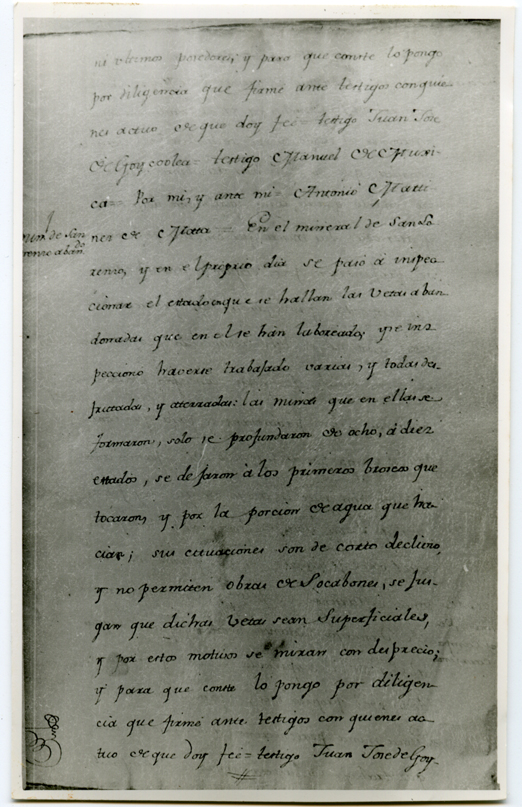 ni vltimos posedores, y para que conste lo pongo
por diligencia que firmé ante testigos con quie-
nes actuo de que doy feé = testigo Juan Jose
de Goycoolea = testigo Manuel de Muxi-
ca = Por mi, y ante mi = Antonio Marti-
nez de Matta = En el mineral de San Lo-
renzo, y en el proprio dia se pasó á inspec-
cionar el estado en que se hallan las Vetas aban-
donadas que en el se hán laboreado, y se ins
peccionó haverse trabajado varias, y todas des-
frutadas, y aterradas: las minas que en ellas se
formaron, solo se profundaron de ocho, á diez
estados, se dejaron á los primeros broseos que
tocaron, y por la porcion de agua que ha-
cian; sus cituaciones son de corto declivio,
y no permiten obras de Socabones, se jus-
gan que dichas Vetas sean Superficiales,
y por estos motivos se miran con desprecio;
y para que conste lo pongo por diligen-
cia que firmé ante testigos con quienes ac-
tuo de que doy feé = testigo Juan Jose de Goy-
Mon. de San
renzo aban.do